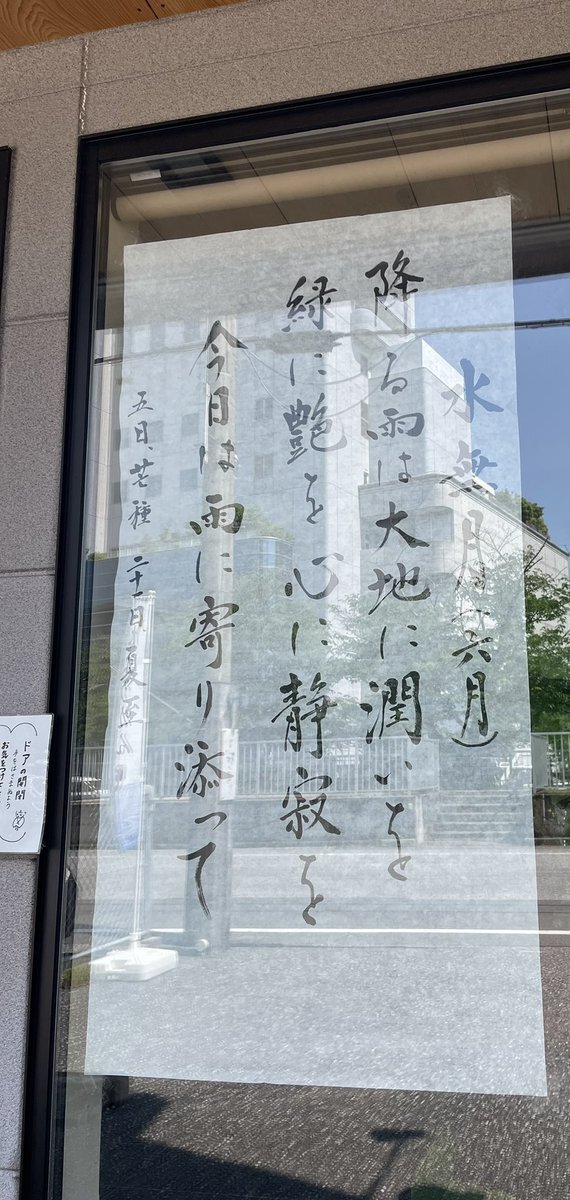 水無月（六月）
降る雨は大地に潤いを
緑に艶を心に静寂を
今日は雨に寄り添って
五日、芒種 二十一日、夏至
ドアの開閉
手をはさまぬよう
お気をつけて